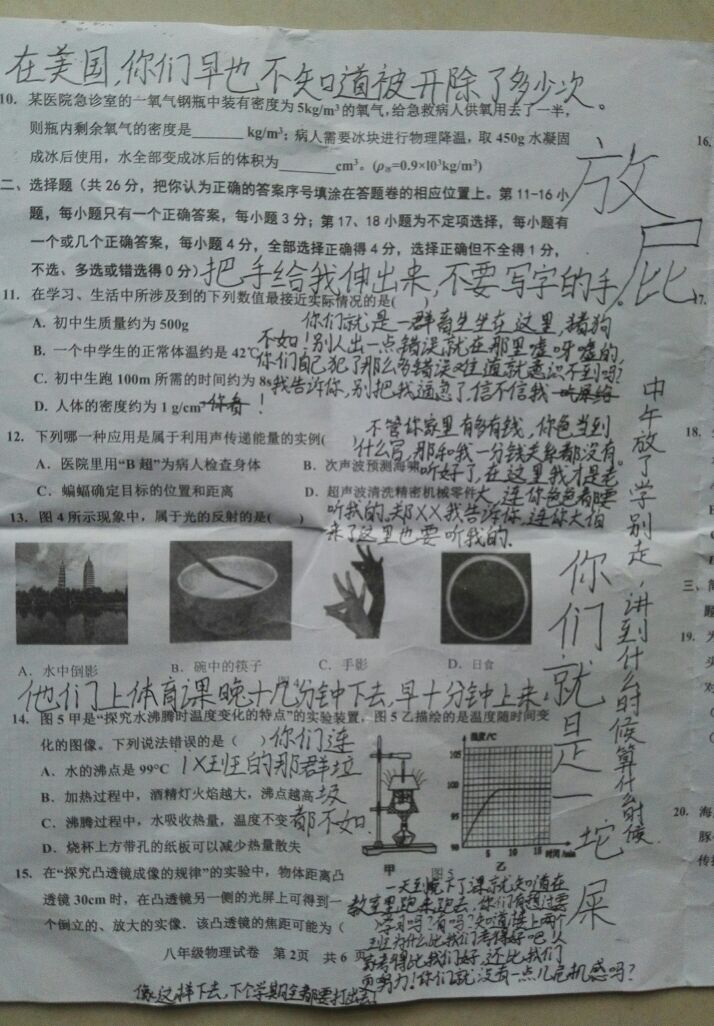 在美国，你们早也不知道被开除了多少次。
10. 某医院急诊室的一氧气钢瓶中装有密度为5kg/m³的氧气，给急救病人供氧用去了一半，
则瓶内剩余氧气的密度是______ kg/m³；病人需要冰块进行物理降温，取450g水凝固
成冰后使用，水全部变成冰后的体积为______cm³。(ρ冰=0.9×10³kg/m³)
放屁
二、选择题（共26分，把你认为正确的答案序号填涂在答题卷的相应位置上。第11-16小
题，每小题只有一个正确答案，每小题3分；第17、18小题为不定项选择，每小题有
一个或几个正确答案，每小题4分，全部选择正确得4分，选择正确但不全得1分，
不选、多选或错选得0分）
把手给我伸出来，不要写字的手。
11. 在学习、生活中所涉及到的下列数值最接近实际情况的是(    )
A. 初中生质量约为500g
B. 一个中学生的正常体温约是42℃
C. 初中生跑100m所需的时间约为8s
D. 人体的密度约为1 g/cm³
你们就是一群畜生坐在这里，猪狗
不如！别人出一点错误就在那里嘘呀嘘的，
你们自己犯了那么多错误对住道就意识不到吗？
我告诉你，别把我逼急了，信不信我
你看！
12. 下列哪一种应用是属于利用声传递能量的实例(
A．医院里用“B超”为病人检查身体
B．次声波预测海啸
C．蝙蝠确定目标的位置和距离
D．超声波清洗精密机械零件
不管你家里有多有钱，你爸当到
什么官，那和我一分钱关系都没有。
听好了，在这里我才是老
大，连你爸爸都要
听我的。郑XX我告诉你，连你大伯
来了这里也要听我的.
13. 图4所示现象中，属于光的反射的是(    )
A．水中倒影
B．碗中的筷子
C．手影
D．日食
中午放了学别走，讲到什么时候算什么时候
你们就是一坨屎
他们上体育课晚十几分钟下去，早十分钟上来，
14. 图5甲是“探究水沸腾时温度变化的特点”的实验装置，图5乙描绘的是温度随时间变
化的图像。下列说法错误的是（    ）
A．水的沸点是99°C
B．加热过程中，酒精灯火焰越大，沸点越高
C．沸腾过程中，水吸收热量，温度不变
D．烧杯上方带孔的纸板可以减少热量散失
你们连
1X班的那群垃
圾
都不如.
温度/℃
105
100
95
90
0 5 10 15 时间/min
甲
图5
乙
15. 在“探究凸透镜成像的规律”的实验中，物体距离凸
透镜30cm时，在凸透镜另一侧的光屏上可得到一
个倒立的、放大的实像．该凸透镜的焦距可能为（
一天到晚下了课就知道在
教室里跑来跑去，你们有想过要
学习吗？有吗？知道楼上两个
班为什么比我们考得好吧！人
家考得比我们好，还比我们
更努力！你们就没有一点儿危机感吗？
八年级物理试卷 第2页 共6页
像这样下去，下个学期全都要打出去！
16.
17.
18.
三、简
题
19.
20. 海
豚
传播